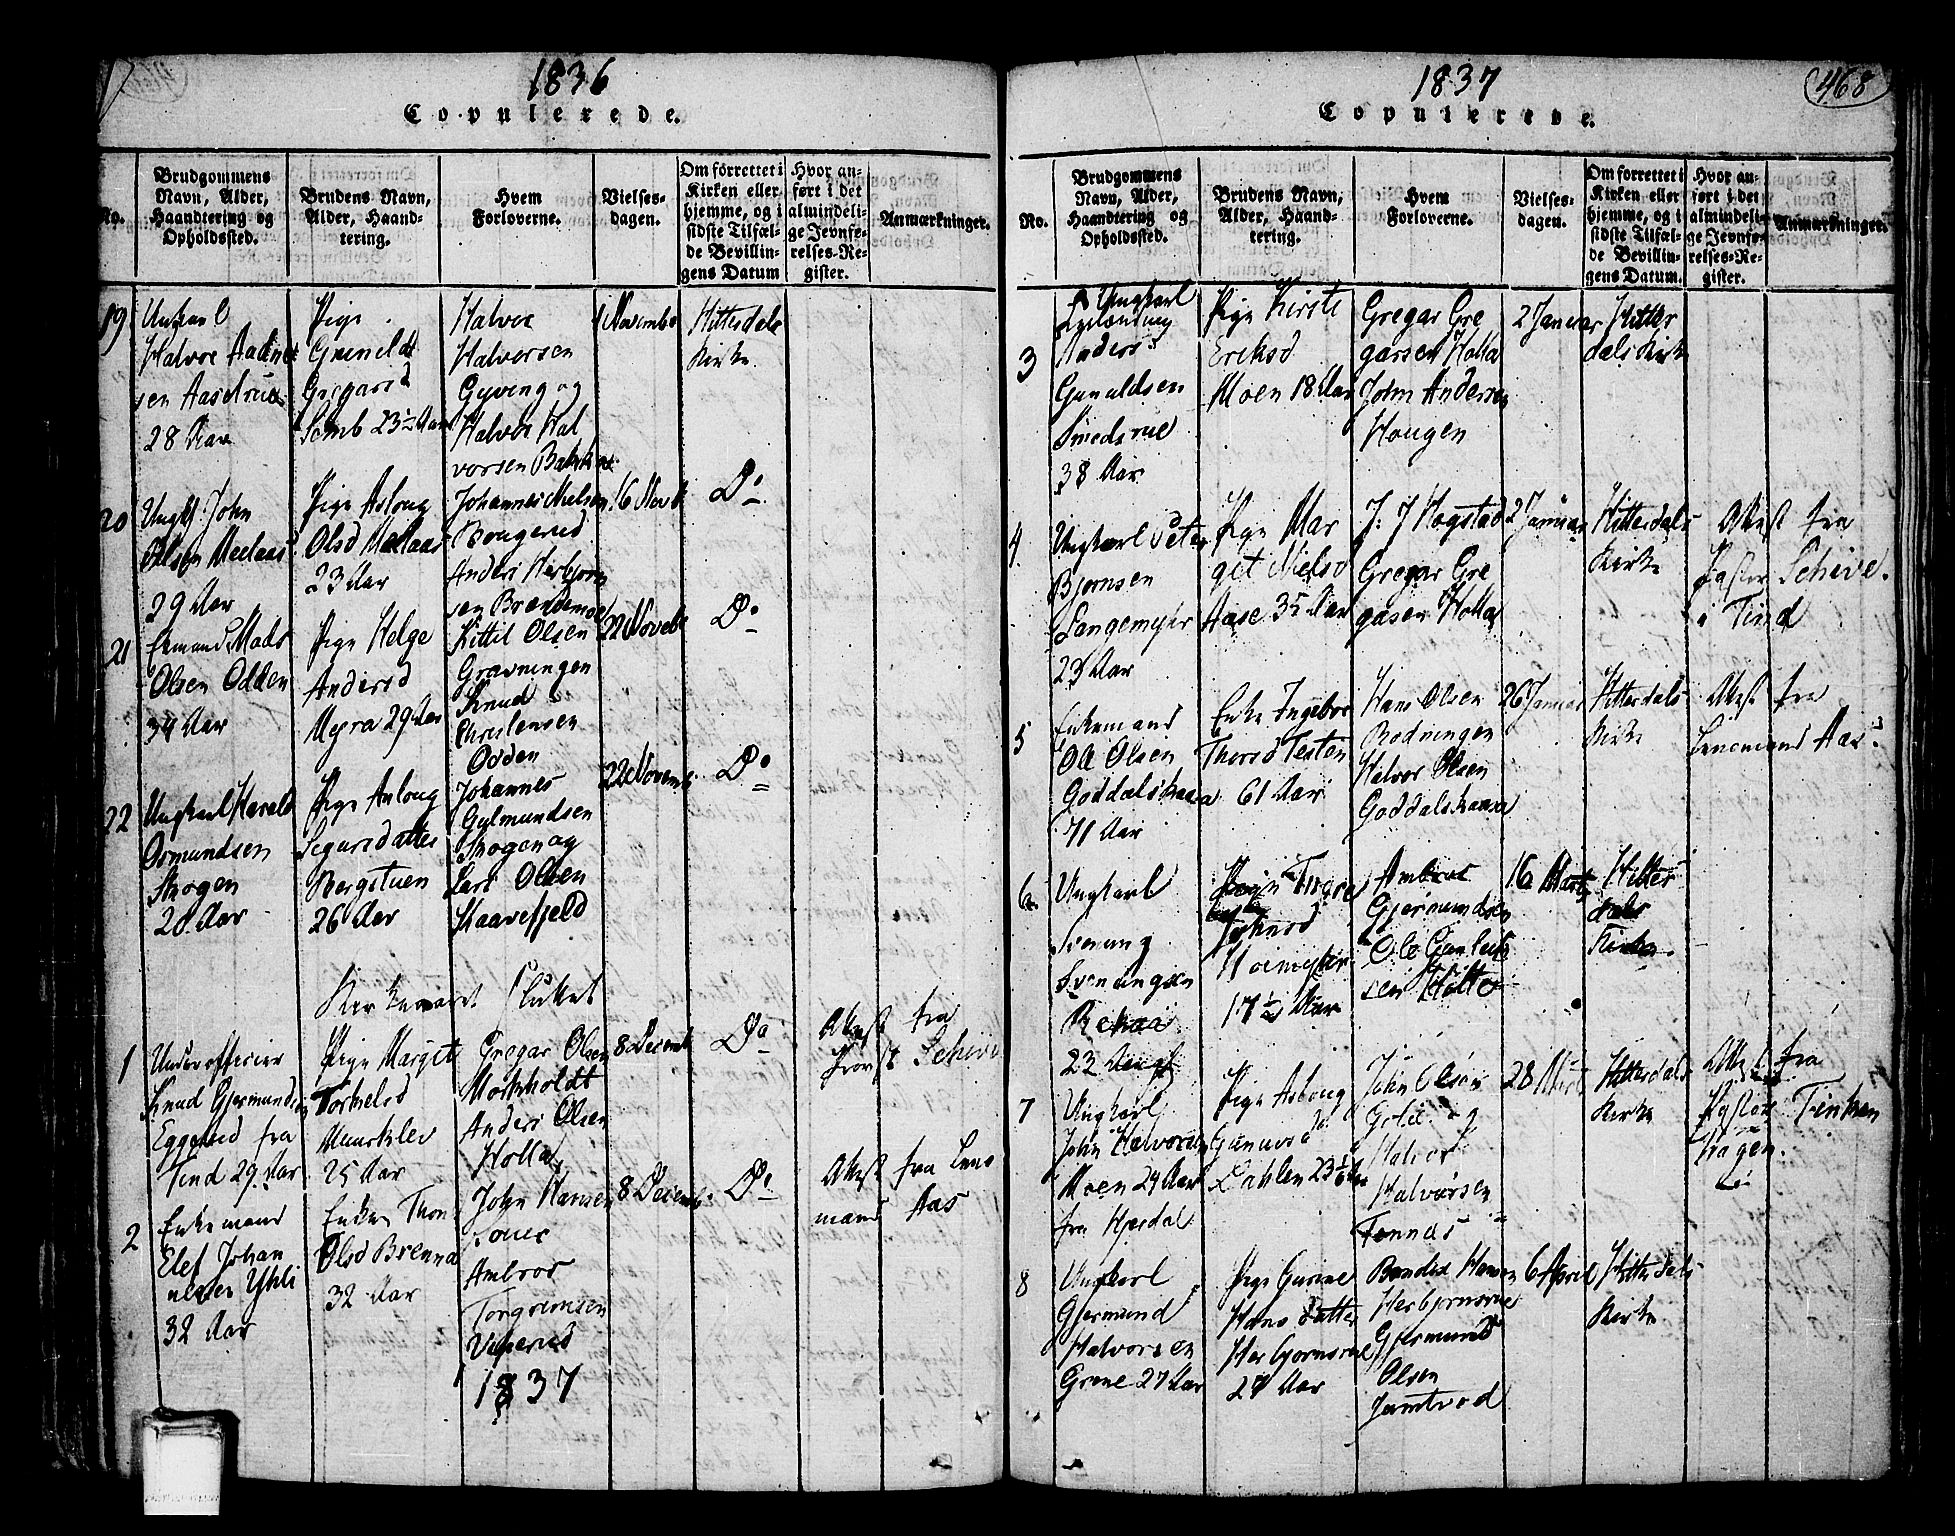 1836
Copulerede.
No.
Brudgommens Navn, Alder, Haandtering og Opholdssted.
Brudens Navn, Alder, Haandtering.
Hvem Forloverne.
Vielsesdagen.
Om forrettet i Kirken eller hjemme, og i sidste Tilfælde Bevillingens Datum
Hvor anført i det almindelige Jevnførelses-Register.
Anmærkninger.
19
Halvor
28 Aar
Pige
Gunild
Semb 23½ Aar
Halvor
Halvorsen
Gyving og
Halvor Hal
vorsen
1 Novembr
Hitterdals
Kirke
20
Ungk John
Olsen
29 Aar
Pige Aslong
Olsd
23 Aar
Johannes Nielsen
Bougerud
Anders Herbjørn
sen
16 Novb
Do
21
Mads
Olsen Odden
34 Aar
Pige Helge
Andersd
Myra 29 Aar
Kittil Olsen
Gravningen
Knud
Christensen
Odden
22 Novebr
Do
22
Ungkarl Harald
Osmundsen
Skogen
28 Aar
Pige Anlong
Sigursdatter
Bergstuen
26 Aar
Johannes
Gulmundsen
Skogen og
Lars Olsen
Skaarefjeld
22 Novemb
Do
Kirkeaaret Sluttet
1
Underofficier
Knud Gjermundsen
Eggerud fra
Tind 29 Aar
Pige Margit
Torkelsd
25 Aar
Gregar Olsen
Mokholdt
Anders Olsen
Holla
8 Decemb
Do
Attest fra
Provst Schive
2
Enkemand
Elef Johan
nesen
32 Aar
Enken Thone
Olsd Brenna
32 Aar
John Hansen
Ambros
Torgrimsen
8 Decemb
Do
Attest fra Lens
mand Aas
1837
1837
468
Copulerede.
No.
Brudgommens Navn, Alder, Haandtering og Opholdssted.
Brudens Navn, Alder, Haandtering.
Hvem Forloverne.
Vielsesdagen.
Om forrettet i Kirken eller hjemme, og i sidste Tilfælde Bevillingens Datum.
Hvor anført i det almindelige Jevnførelses-Register.
Anmærkninger.
3
Ungkarl
Anders
Gunuldsen
Smedsrue
38 Aar
Pige Kirsti
Eriksd
Moen 18 Aar
Gregar Gre
garsen Holla
John Andersen
Haugen
2 Januar
Hitter
dals Kirke
4
Ungkarl Peter
Bjørnsen
Langemyhr
23 Aar
Pige Mar
git Nielsd
Aase 35 Aar
J: J Hogstad
Gregar Gre
gasen Holla
2 Januar
Hitterdals
Kirke
Attest fra
Pastor Schive
i Tind
5
Enkemand
Ole Olsen
Goddalskaasa
71 Aar
Enke Ingebor
Thorsd
61 Aar
Hans Olsen
Bodningen
Halvor Olsen
Goddalskaasa
26 Januar
Hitterdals
Kirke
Attest fra
Lensmand Aas
6
Ungkarl
Svenung
Svenungsen
22
Johnsd
17½ Aar
Ambros
Gjermundsen
Ole Gunleik
sen Holte
16 Marts
Hitter
dals
Kirke
7
Ungkarl
John Halvorsen
Moen 24 Aar
fra Hjerdal
Pige Asloug
Gunursd
Dahlen 23½ Aar
John Olsen
og
Halvor
Halvorsen
28 Marts
Hitterdals
Kirke
Attest fra
Pastor Tinken
hagen
8
Ungkarl
Gjermund
Halvorsen
Grene 27 Aar
Pige Gurine
Hans datter
Herbjornsrue
27 Aar
Hansen
Herbjornsrue
Gjermund
Olsen
Jamtvod
6 April
Hitterdals
Kirke